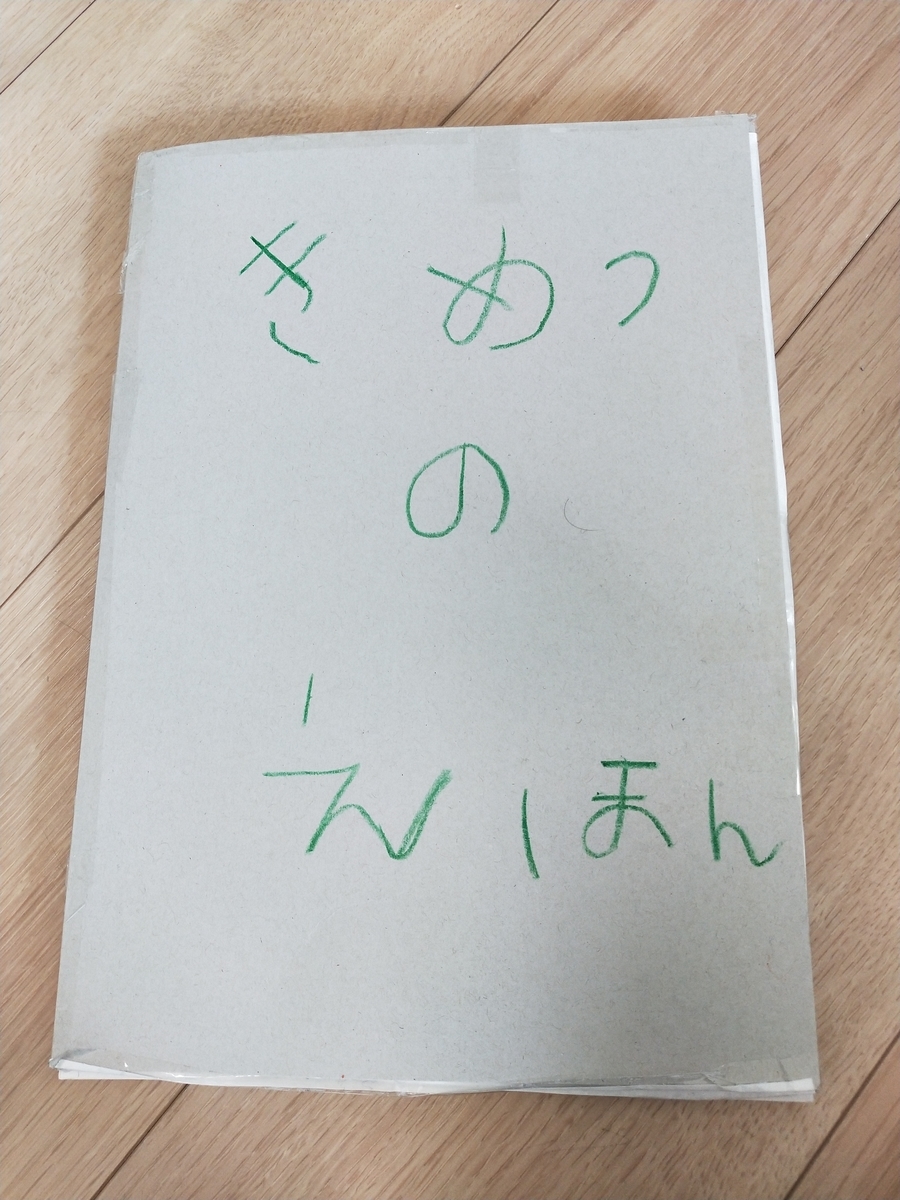 きめつ
の
えほん